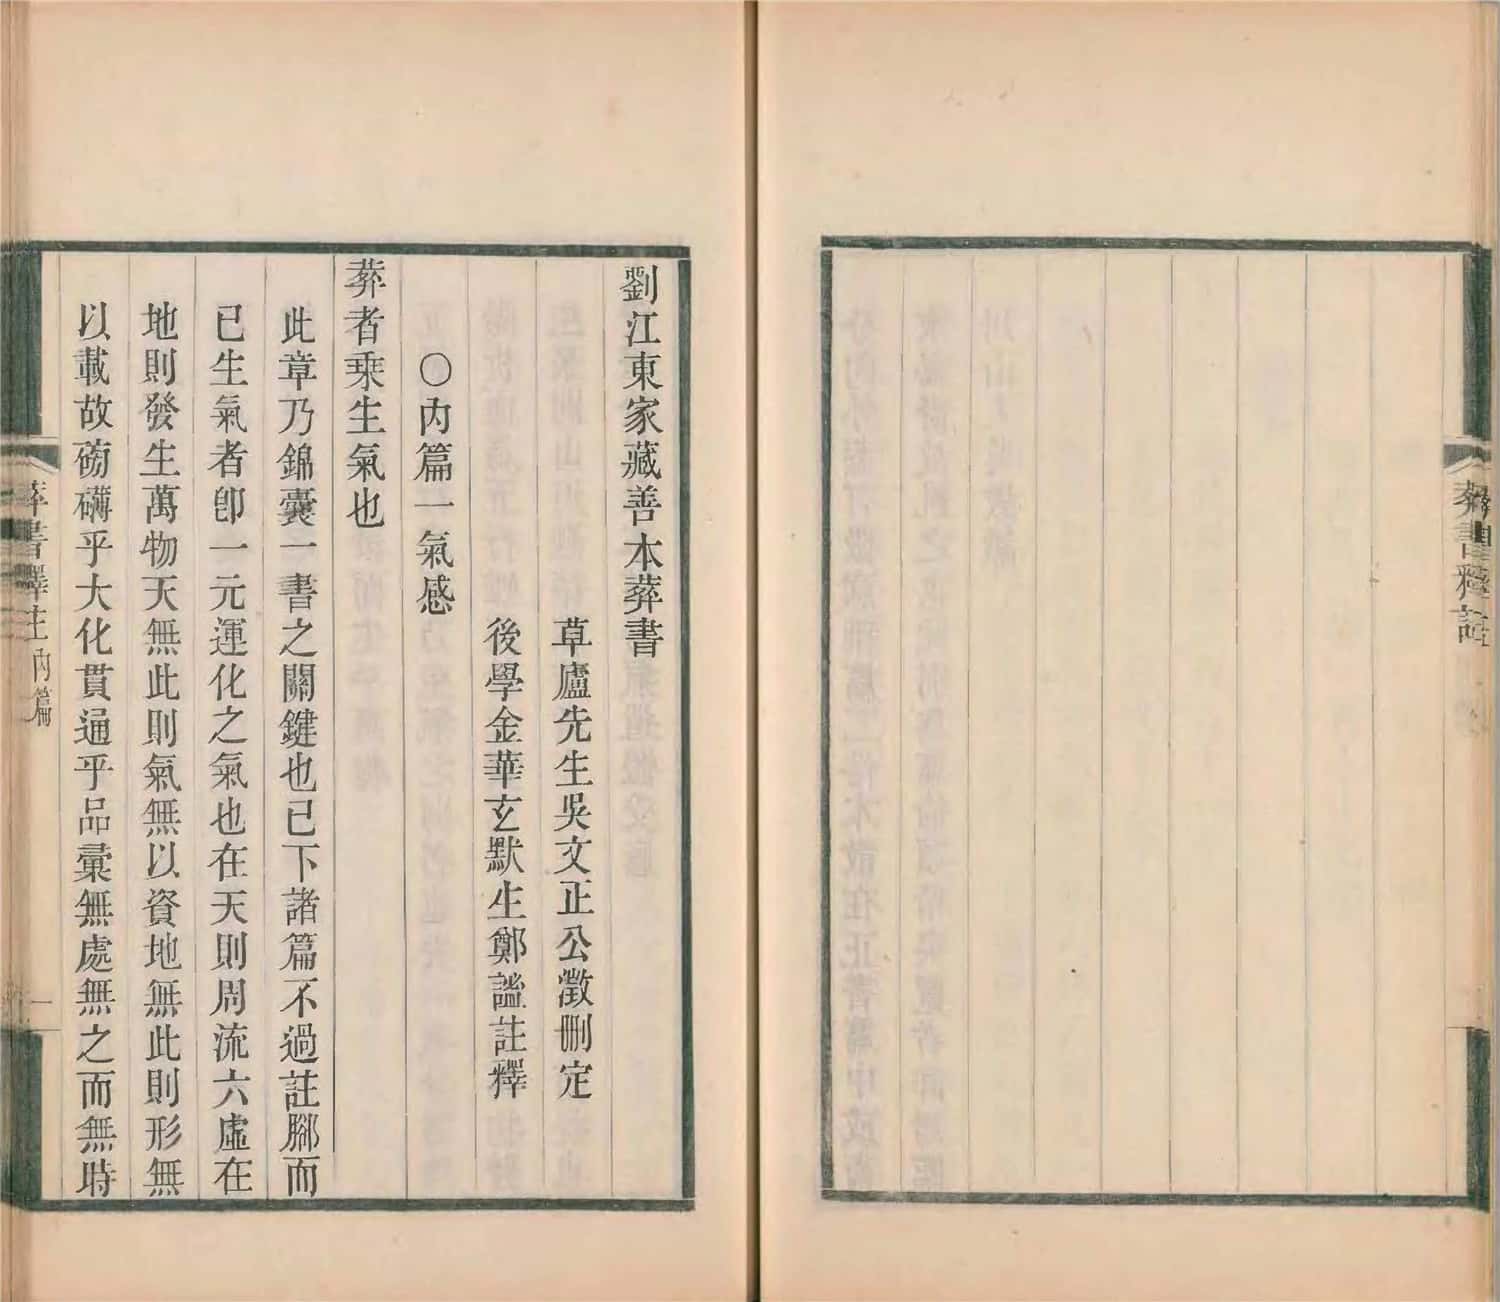 葬書釋註
劉江東家藏善本葬書
草廬先生吳文正公澂刪定
後學金華玄默生鄭謐註釋
○內篇一氣感
葬者乗生氣也
此章乃錦囊一書之關鍵也已下諸篇不過註腳而
已生氣者卽一元運化之氣也在天則周流六虛在
地則發生萬物天無此則氣無以資地無此則形無
以載故磅礴乎大化貫通乎品彙無處無之而無時
葬書釋注 內篇
一